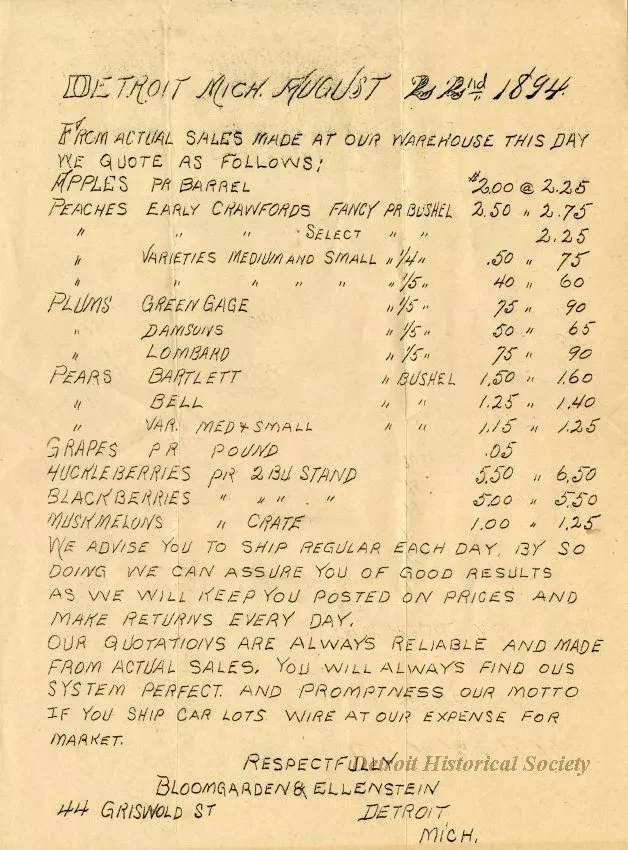 DETROIT MICH. AUGUST 22nd 1894.
FROM ACTUAL SALES MADE AT OUR WAREHOUSE THIS DAY
WE QUOTE AS FOLLOWS;
APPLES PR BARREL $2.00 @ 2.25
PEACHES EARLY CRAWFORDS FANCY PR BUSHEL 2.50 " 2.75
" " " SELECT " " 2.25
" VARIETIES MEDIUM AND SMALL " 1/4 " .50 " 75
" " " " " " 1/5 " 40 " 60
PLUMS GREEN GAGE " 1/5 " 75 " 90
" DAMSONS " 1/5 " 50 " 65
" LOMBARD " 1/5 " 75 " 90
PEARS BARTLETT " BUSHEL 1.50 " 1.60
" BELL " " 1.25 " 1.40
" VAR. MED & SMALL " " 1.15 " 1.25
GRAPES PR POUND .05
HUCKLEBERRIES PR 2 BU STAND 5.50 " 6.50
BLACKBERRIES " " " " 5.00 " 5.50
MUSKMELONS " CRATE 1.00 " 1.25
WE ADVISE YOU TO SHIP REGULAR EACH DAY, BY SO
DOING WE CAN ASSURE YOU OF GOOD RESULTS
AS WE WILL KEEP YOU POSTED ON PRICES AND
MAKE RETURNS EVERY DAY.
OUR QUOTATIONS ARE ALWAYS RELIABLE AND MADE
FROM ACTUAL SALES. YOU WILL ALWAYS FIND OUS
SYSTEM PERFECT AND PROMPTNESS OUR MOTTO
IF YOU SHIP CAR LOTS WIRE AT OUR EXPENSE FOR
MARKET.
RESPECTFULLY
Detroit Historical Society
BLOOMGARDEN & ELLENSTEIN
44 GRISWOLD ST DETROIT
MICH.